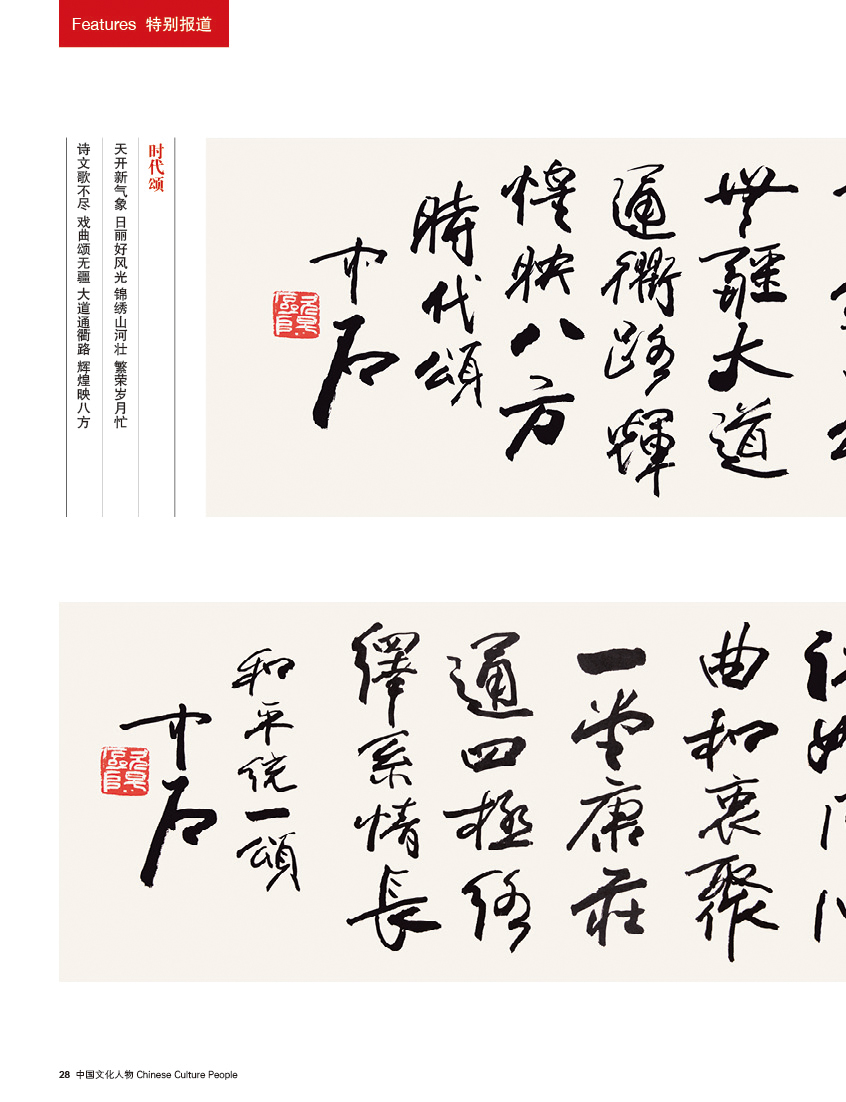 Features 特别报道
时代颂
天开新气象 日丽好风光 锦绣山河壮 繁荣岁月忙
诗文歌不尽 戏曲颂无疆 大道通衢路 辉煌映八方
無疆大道
通衢路輝
煌映八方
時代頌
中石
曲和衷聚
一堂康莊
通四極絡
繹系情長
和平統一頌
中石
28 中国文化人物 Chinese Culture People